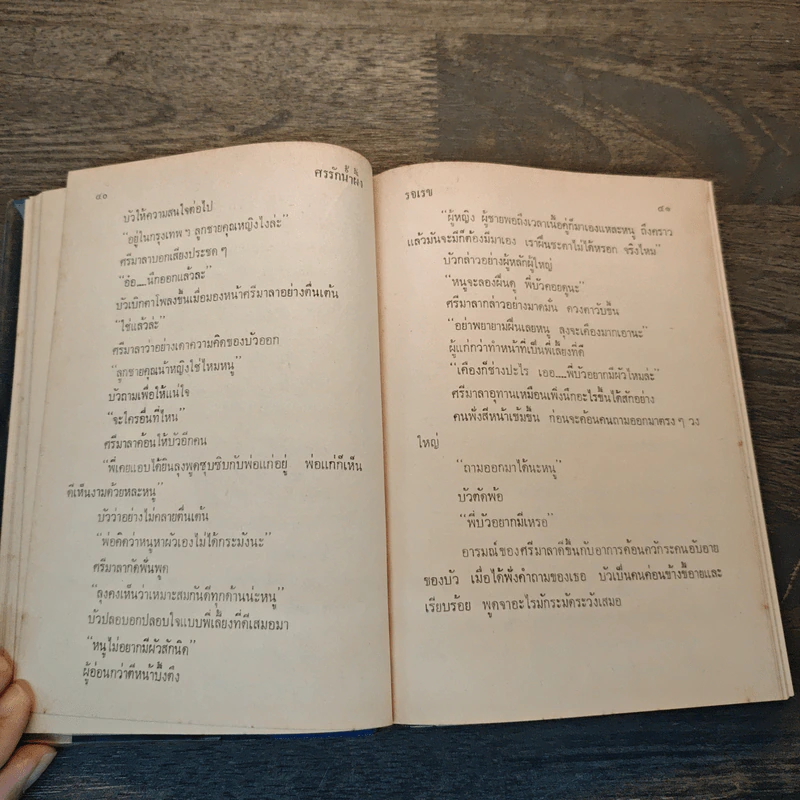 ๔๐
ศรรักน้ำผึ้ง
บัวให้ความสนใจต่อไป
“อยู่ในกรุงเทพ ฯ ลูกชายคุณหญิงไงล่ะ”
ศรีมาลาบอกเสียงประชด ๆ
“อ๋อ....นึกออกแล้วละ”
บัวเบิกตาโพลงขึ้นเมื่อมองหน้าศรีมาลาอย่างตื่นเต้น
“ใช่แล้วล่ะ”
ศรีมาลาว่าอย่างเดาความคิดของบัวออก
“ลูกชายคุณน้าหญิงใช่ไหมหนู”
บัวถามเพื่อให้แน่ใจ
“จะใครอื่นที่ไหน”
ศรีมาลาค้อนให้บัวอีกคน
“พี่เคยแอบได้ยินลุงพูดซุบซิบกับพ่อแก่อยู่ พ่อแก่ก็เห็น
ดีเห็นงามด้วยหละหนู”
บัวว่าอย่างไม่คลายตื่นเต้น
“พ่อคิดว่าหนูหาผัวเองไม่ได้กระมังนะ”
ศรีมาลากัดฟันพูด
“ลุงคงเห็นว่าเหมาะสมกันดีทุกด้านน่ะหนู”
บัวปลอบอกปลอบใจแบบพี่เลี้ยงที่ดีเสมอมา
“หนูไม่อยากมีผัวสักนิด”
ผู้อ่อนกว่าตีหน้าบึ้งตึง
รจเรข
๔๑
“ผู้หญิง ผู้ชายพอถึงเวลาเนื้อคู่ก็มาเองแหละหนู ถึงคราว
แล้วมันจะมีก็ต้องมีมาเอง เราฝืนชะตาไม่ได้หรอก จริงไหม”
บัวกล่าวอย่างผู้หลักผู้ใหญ่
“หนูจะลองฝืนดู พี่บัวคอยดูนะ”
ศรีมาลากล่าวอย่างมาดมั่น ดวงตาวับขึ้น
“อย่าพยายามฝืนเลยหนู ลุงจะเคืองมากเอานะ”
ผู้แก่กว่าทำหน้าที่เป็นพี่เลี้ยงที่ดี
“เคืองก็ช่างปะไร เธอ....พี่บัวอยากมีผัวไหมล่ะ”
ศรีมาลาอุทานเหมือนเพิ่งนึกอะไรขึ้นได้สักอย่าง
คนฟังสีหน้าเข้มขึ้น ก่อนจะค้อนคนถามออกมาตรง ๆ วง
ใหญ่
“ถามออกมาได้นะหนู”
บัวตัดพ้อ
“พี่บัวอยากมีเหรอ”
อารมณ์ของศรีมาลาดีขึ้นกับอาการค้อนควักระคนอับอาย
ของบัว เมื่อได้ฟังคำถามของเธอ บัวเป็นคนค่อนข้างขี้อายและ
เรียบร้อย พูดจาอะไรมักระมัดระวังเสมอ